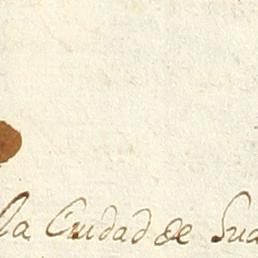 la Ciudad de Gua